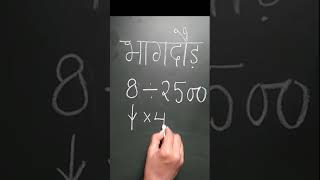 भागदौड़
8 ÷ 2500
↓ × 4